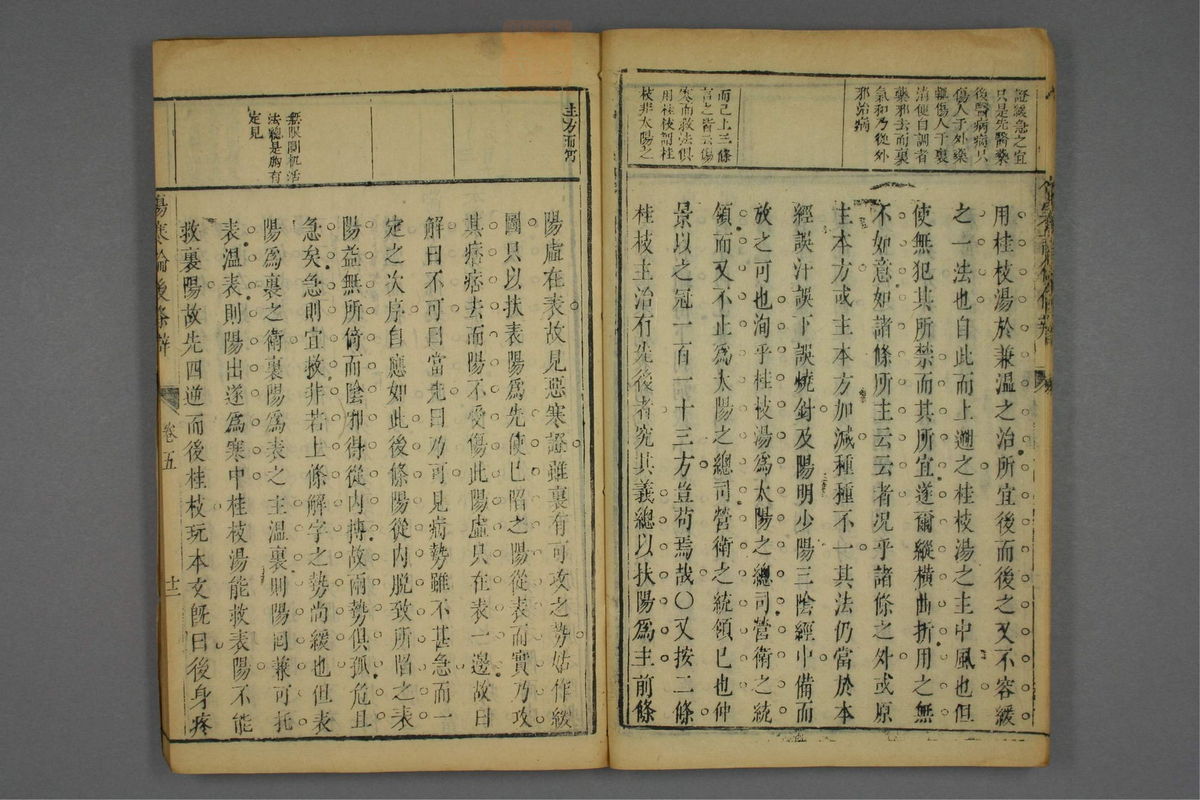 證緩急之宜
只是先醫藥
後醫病病只
傷人于外藥
輒傷人于裏
消便自調者
藥邪去而裏
氣和乃從外
邪治病
而已上三條
言之皆云傷
寒而救法俱
用桂枝謂桂
枝非太陽之
用桂枝湯於兼溫之治所宜後而後之又不容緩
之一法也自此而上遡之桂枝湯之主中風也但
使無犯其所禁而其所宜遂爾縱橫曲折用之無
不如意如諸條所主云云者況乎諸條之外或原
主本方或主本方加減種種不一其法仍當於本
經誤汗誤下誤燒針及陽明少陽三陰經中備而
放之可也洵乎桂枝湯為太陽之總司營衛之統
領而又不止為太陽之總司營衛之統領已也仲
景以之冠一百一十三方豈苟焉哉○又按二條
桂枝主治有先後者究其義總以扶陽為主前條
主方而

無限圓机活
法總是胸有
定見
陽虛在表故見惡寒證雖裏有可攻之勢姑作緩
圖只以扶表陽為先使已陷之陽從表而實乃攻
其痞痞去而陽不受傷此陽虛只在表一邊故曰
解曰不可曰當先曰乃可見病勢雖不甚急而一
定之次序自應如此後條陽從內脫致所陷之表
陽益無所倚而陰邪得從內搏故兩勢俱孤危且
急矣急則宜救非若上條解字之勢尚緩也但表
陽為裏之衛裏陽為表之主溫裏則陽回兼可托
表溫表則陽出遂為寒中桂枝湯能救表陽不能
救裏陽故先四逆而後桂枝玩本文旣曰後身疼
傷寒論後條辨
卷五
十三